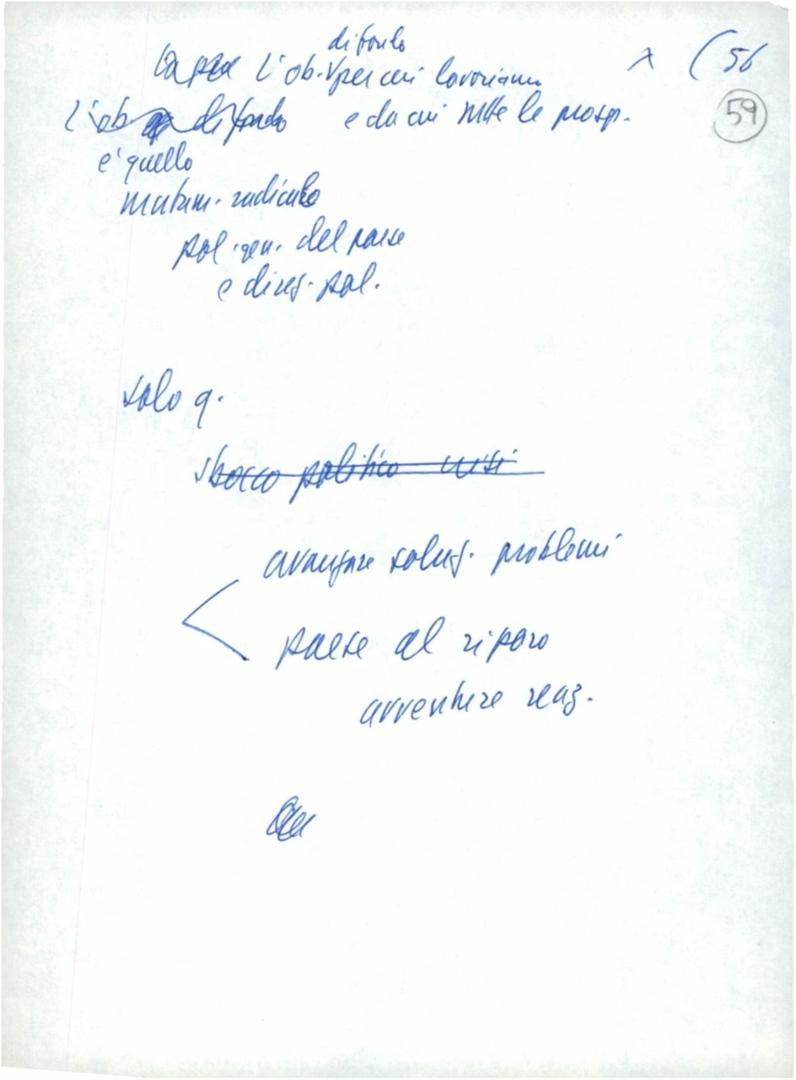 di fondo
L'ob. per cui lavoriamo x (56
59
L'ob di fondo e da cui tutte le prosp.
e' quello
mutam. radicale
pol. gen. del paese
e direz. pol.
solo q.
sbocco politico crisi
avanzare soluz. problemi
paese al riparo
avventure reaz.